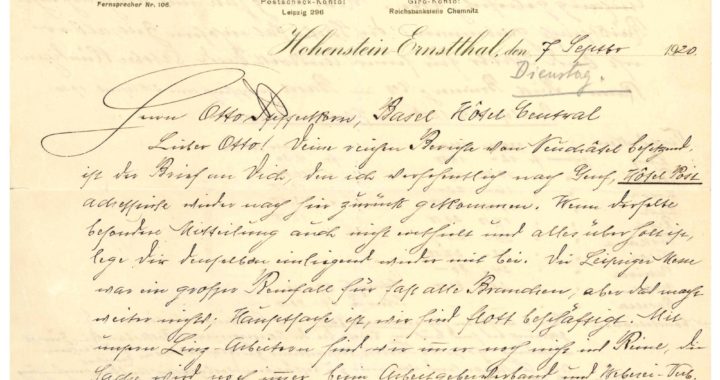 Fernsprecher Nr. 106.
Postscheck-Konto:
Leipzig 296
Giro-Konto:
Reichsbankstelle Chemnitz
Hohenstein-Ernstthal, den 7 Septbr 1920.
Dienstag.
Herrn Otto, Basel Hôtel Central
Lieber Otto! Deine reichen Berichte von Neuchâtel besitzend,
ist der Brief an Dich, den ich versehentlich nach Genf, Hôtel Post
adressierte wieder nach hier zurück gekommen. Wenn derselbe
besondere Mitteilung auch nicht enthielt und alles überholt ist,
lege Dir denselben einliegend wieder mit bei. Die Leipziger Messe
war ein großer Reinfall für fast alle Branchen, aber das macht
weiter nichts; Hauptsache ist, wir sind flott beschäftigt. Mit
unsern Arbeitern sind wir immer noch nicht im Reine, die
Sache wird noch immer beim Arbeitgeberverband und Weberei-Verb.